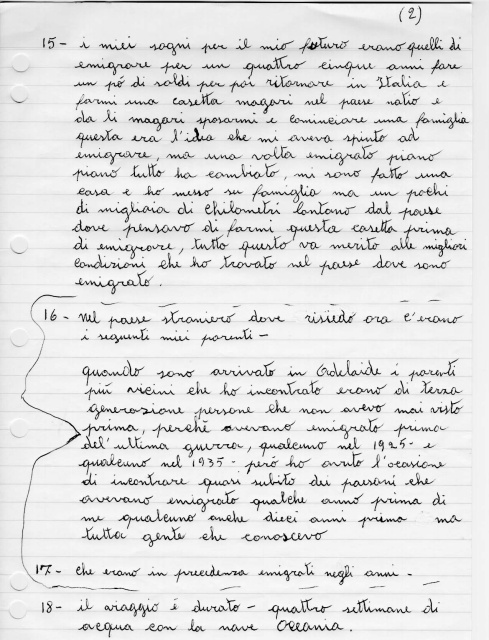 (2)
15 - i miei sogni per il mio futuro erano quelli di
emigrare per un quattro cinque anni fare
un pó di soldi per poi ritornare in Italia e
farmi una casetta magari nel paese natio e
da li magari sposarmi e cominciare una famiglia
questa era l'idea che mi aveva spinto ad
emigrare, ma una volta emigrato piano
piano tutto ha cambiato, mi sono fatto una
casa e ho messo su famiglia ma un pochi
di migliaia di chilometri lontano dal paese
dove pensavo di farmi questa casetta prima
di emigrare, tutto questo va merito alle migliori
condizioni che ho trovato nel paese dove sono
emigrato.
16 - nel paese straniero dove risiedo ora c'erano
i seguenti miei parenti -
quando sono arrivato in Adelaide i parenti
piú vicini che ho incontrato erano di terza
generazione persone che non avevo mai visto
prima, perché avevano emigrato prima
del'ultima guerra, qualcuno nel 1925 - e
qualcuno nel 1935 - peró ho avuto l'ocasione
di incontrare quasi subito dei paesani che
avevano emigrato qualche anno prima di
me qualcuno anche dieci anni prima ma
tutta gente che conoscevo
17 - che erano in precedenza emigrati negli anni -
18 - il viaggio é durato - quattro settimane di
acqua con la nave Oceania.